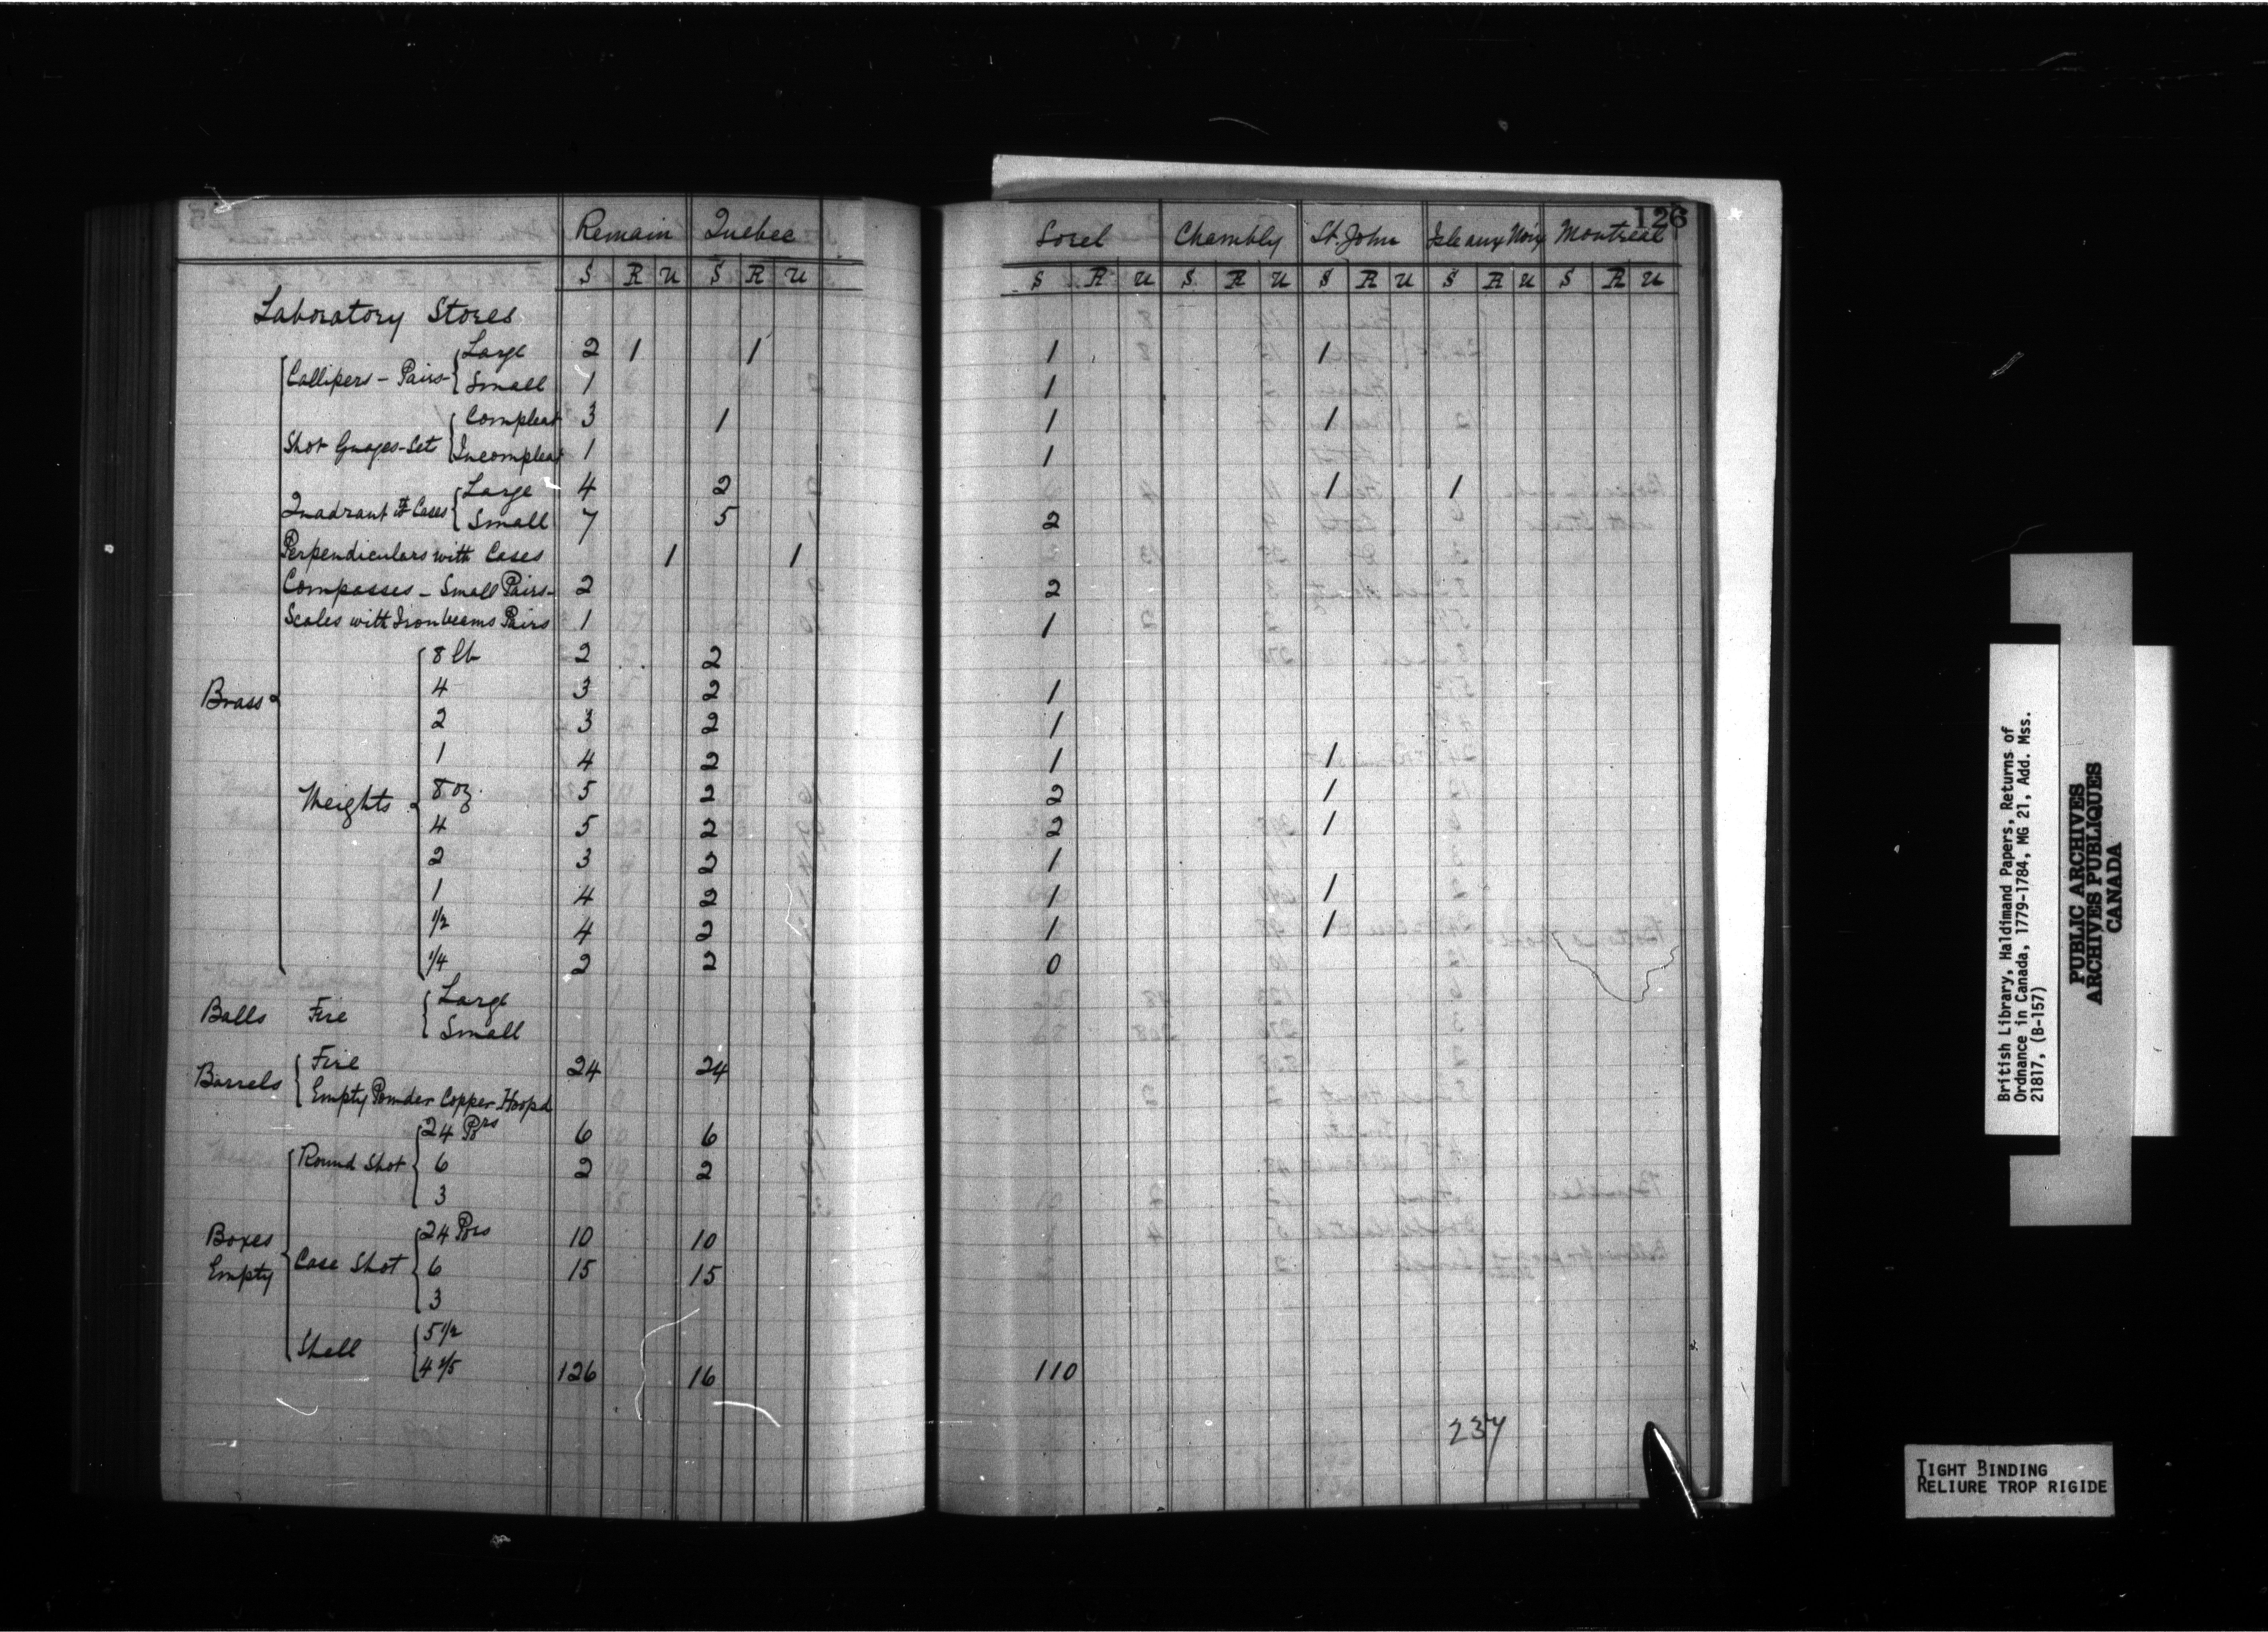 126
Remain Quebec Sorel Chambly St. John Isle aux Noix Montreal
S R U S R U S R U S R U S R U S R U S R U
Laboratory Stores
Brass
Callipers - Pairs - Large 2 1 1 1 1
Small 1 1
Shot Guages - Set Compleat 3 1 1 1
Incompleat 1 1
Quadrant wth Cases Large 4 2 1 1
Small 7 5 2
Perpendiculars with Cases 1 1
Compasses - Small Pairs - 2 2
Scales with Iron beams Pairs 1 1
Weights
8 lb 2 2
4 3 2 1
2 3 2 1
1 4 2 1 1
8 oz. 5 2 2 1
4 5 2 2 1
2 3 2 1
1 4 2 1 1
1/2 4 2 1 1
1/4 2 2 0
Balls Fire Large
Small
Barrels Fire 24 24
Empty Powder Copper Hoopd
Boxes Empty
Round Shot 24 Prs 6 6
6 2 2
3
Case Shot 24 Prs 10 10
6 15 15
3
Shell 5 1/2
4 2/5 126 16 110
237
British Library, Haldimand Papers, Returns of
Ordnance in Canada, 1779-1784, MG 21, Add. Mss.
21817, (B-157)
PUBLIC ARCHIVES
ARCHIVES PUBLIQUES
CANADA
TIGHT BINDING
RELIURE TROP RIGIDE